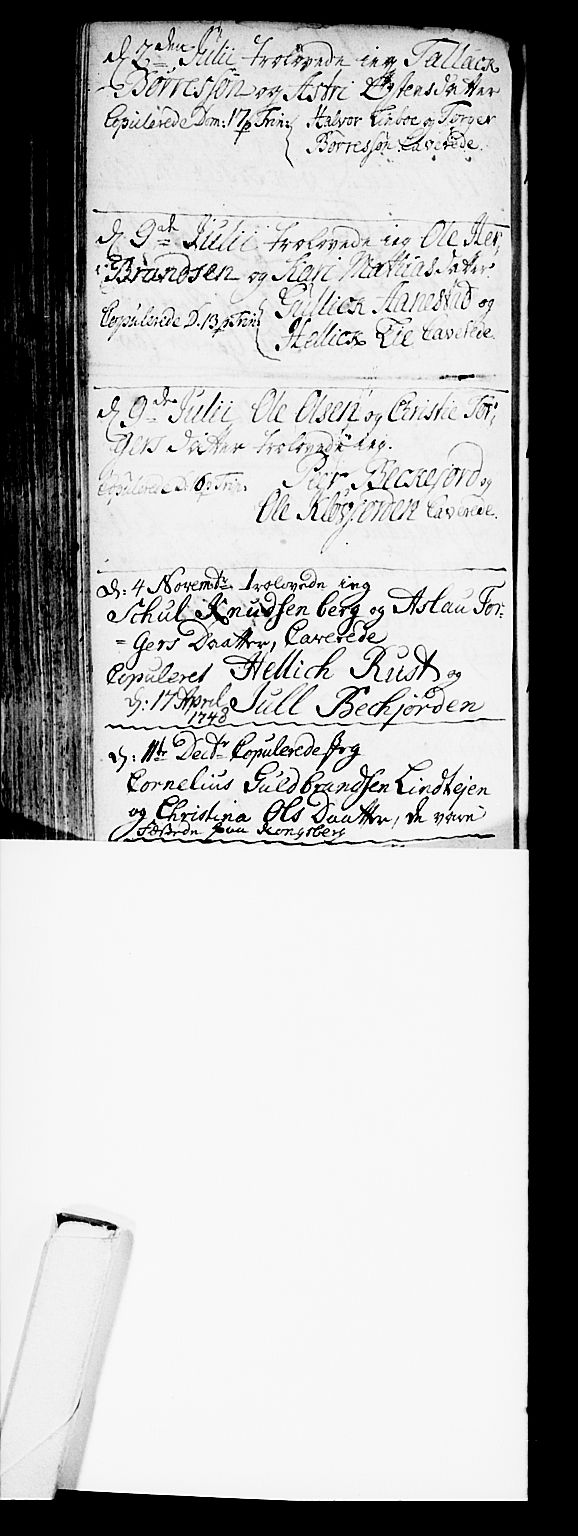 d 2den Julii trolovede ieg Tallack
Børressøn og Astri Østensdatter
Copulerede Dom: 17 p Trin: Halvor Linboe og Torger
Børressøn Caverede.
d 9de Julii trolovede ieg Ole Her,
Brandsen og Kari Mathias datter
Copulerede D. 13 p Trin: Gullick Aanestad og
Hellick Lie Caverede.
d 9de Julii Ole Olsen og Christie Tor,
gers datter trolovede ieg.
Copulerede D. p Trin. Peer Beckefiord og
Ole Kløvfiorden Caverede.
d: 4 Novembr: trolovede ieg
Schul Knudsen berg og Aslau Tor:
= Gers Daatter, Caverede
Copuleret Hellich Rust og
d: 17 April Jull Bechjorden
1748
d: 11te Decbr Copulerede Jeg
Cornelius Guldbrandsen Lindtejen
og Christina Ols Daatter, de vare
paa Kongsberg